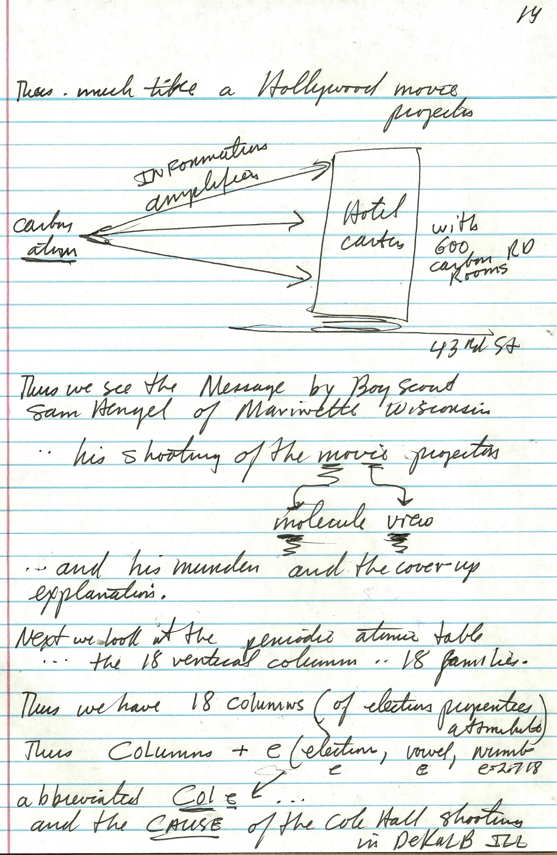 14
Thus. much like a Hollywood movie
projector
INFORMATION
amplifier
carbon
atom
Hotel
carter
with
600
carbon RD
Rooms
43rd St
Thus we see the Message by Boy Scout
Sam Hengel of Marinette Wisconsin
.. his shooting of the movie projector
molecule view
... and his murder and the cover-up
explanation.
Next we look at the periodic atomic table
... the 18 vertical columns .. 18 families.
Thus we have 18 columns (of electron properties)
attributes
Thus COLUMNS + e (electron, vowel, number
e e e=2.718
abbreviated COLe ...
and the CAUSE of the Cole Hall shooting
in DeKalB ILL